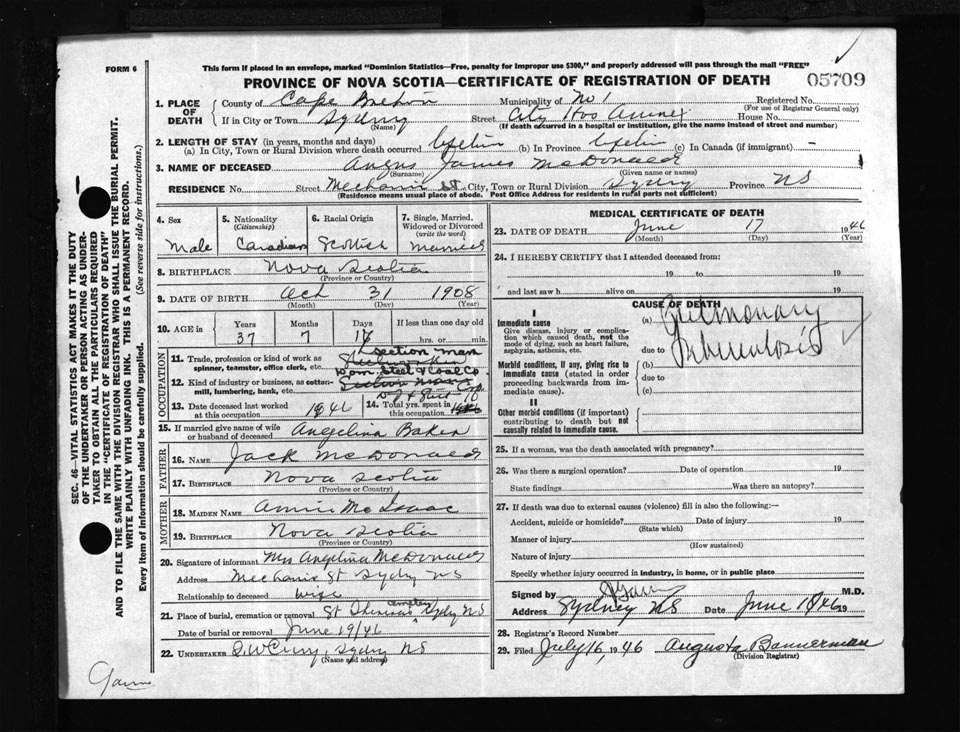 FORM 6
This form if placed in an envelope, marked "Dominion Statistics—Free, penalty for improper use $300," and properly addressed will pass through the mail "FREE"
PROVINCE OF NOVA SCOTIA—CERTIFICATE OF REGISTRATION OF DEATH 05709
1. PLACE OF DEATH
County of Cape Breton Municipality of No 1 Registered No.
(For use of Registrar General only)
If in City or Town Sydney Street City Hos Annex House No.
(Name) (If death occurred in a hospital or institution, give the name instead of street and number)
2. LENGTH OF STAY (in years, months and days)
(a) In City, Town or Rural Division where death occurred lifetime (b) In Province lifetime (c) In Canada (if immigrant) —
3. NAME OF DECEASED Angus James McDonald
(Surname) (Given name or names)
RESIDENCE No. Street Mechanic St City, Town or Rural Division Sydney Province NS
(Residence means usual place of abode. Post Office Address for residents in rural parts not sufficient)
4. Sex Male
5. Nationality (Citizenship) Canadian
6. Racial Origin Scottish
7. Single, Married, Widowed or Divorced (write the word) married
8. BIRTHPLACE Nova Scotia
(Province or Country)
9. DATE OF BIRTH Oct 31 1908
(Month) (Day) (Year)
10. AGE in Years Months Days If less than one day old
37 7 hrs. or min.
OCCUPATION
11. Trade, profession or kind of work as spinner, teamster, office clerk, etc. section man
12. Kind of industry or business, as cotton-mill, lumbering, bank, etc. Dom Steel & Coal Co
13. Date deceased last worked at this occupation 1946
14. Total yrs. spent in this occupation
15. If married give name of wife or husband of deceased Angelina Baker
FATHER
16. NAME Jack McDonald
17. BIRTHPLACE Nova Scotia
(Province or Country)
MOTHER
18. MAIDEN NAME Annie McIsaac
19. BIRTHPLACE Nova Scotia
(Province or Country)
20. Signature of informant Mrs Angelina McDonald
Address Mechanic St Sydney NS
Relationship to deceased wife
21. Place of burial, cremation or removal St Sydney NS
Date of burial or removal June 19/46
22. UNDERTAKER Sydney NS
(Name and address)
MEDICAL CERTIFICATE OF DEATH
23. DATE OF DEATH June 17 1946
(Month) (Day) (Year)
24. I HEREBY CERTIFY that I attended deceased from:
19 to 19
and last saw h alive on 19
CAUSE OF DEATH
I
Immediate cause (a) Pulmonary
Give disease, injury or complication which caused death, not the mode of dying, such as heart failure, asphyxia, asthenia, etc.
due to Tuberculosis
Morbid conditions, if any, giving rise to immediate cause (stated in order proceeding backwards from immediate cause).
(b)
due to
(c)
II
Other morbid conditions (if important) contributing to death but not causally related to immediate cause.
25. If a woman, was the death associated with pregnancy?
26. Was there a surgical operation? Date of operation 19
State findings Was there an autopsy?
27. If death was due to external causes (violence) fill in also the following:—
Accident, suicide or homicide? Date of injury 19
(State which)
Manner of injury
(How sustained)
Nature of injury
Specify whether injury occurred in industry, in home, or in public place
Signed by M.D.
Address Sydney NS Date June 46 19
28. Registrar's Record Number
29. Filed July 16, 1946 Augusta Bannerman
(Division Registrar)
SEC. 46—VITAL STATISTICS ACT MAKES IT THE DUTY
OF THE UNDERTAKER OR PERSON ACTING AS UNDER-
TAKER TO OBTAIN ALL THE PARTICULARS REQUIRED
IN THE "CERTIFICATE OF REGISTRATION OF DEATH"
AND TO FILE THE SAME WITH THE DIVISION REGISTRAR WHO SHALL ISSUE THE BURIAL PERMIT.
WRITE PLAINLY WITH UNFADING INK. THIS IS A PERMANENT RECORD.
Every item of information should be carefully supplied. (See reverse side for instructions.)